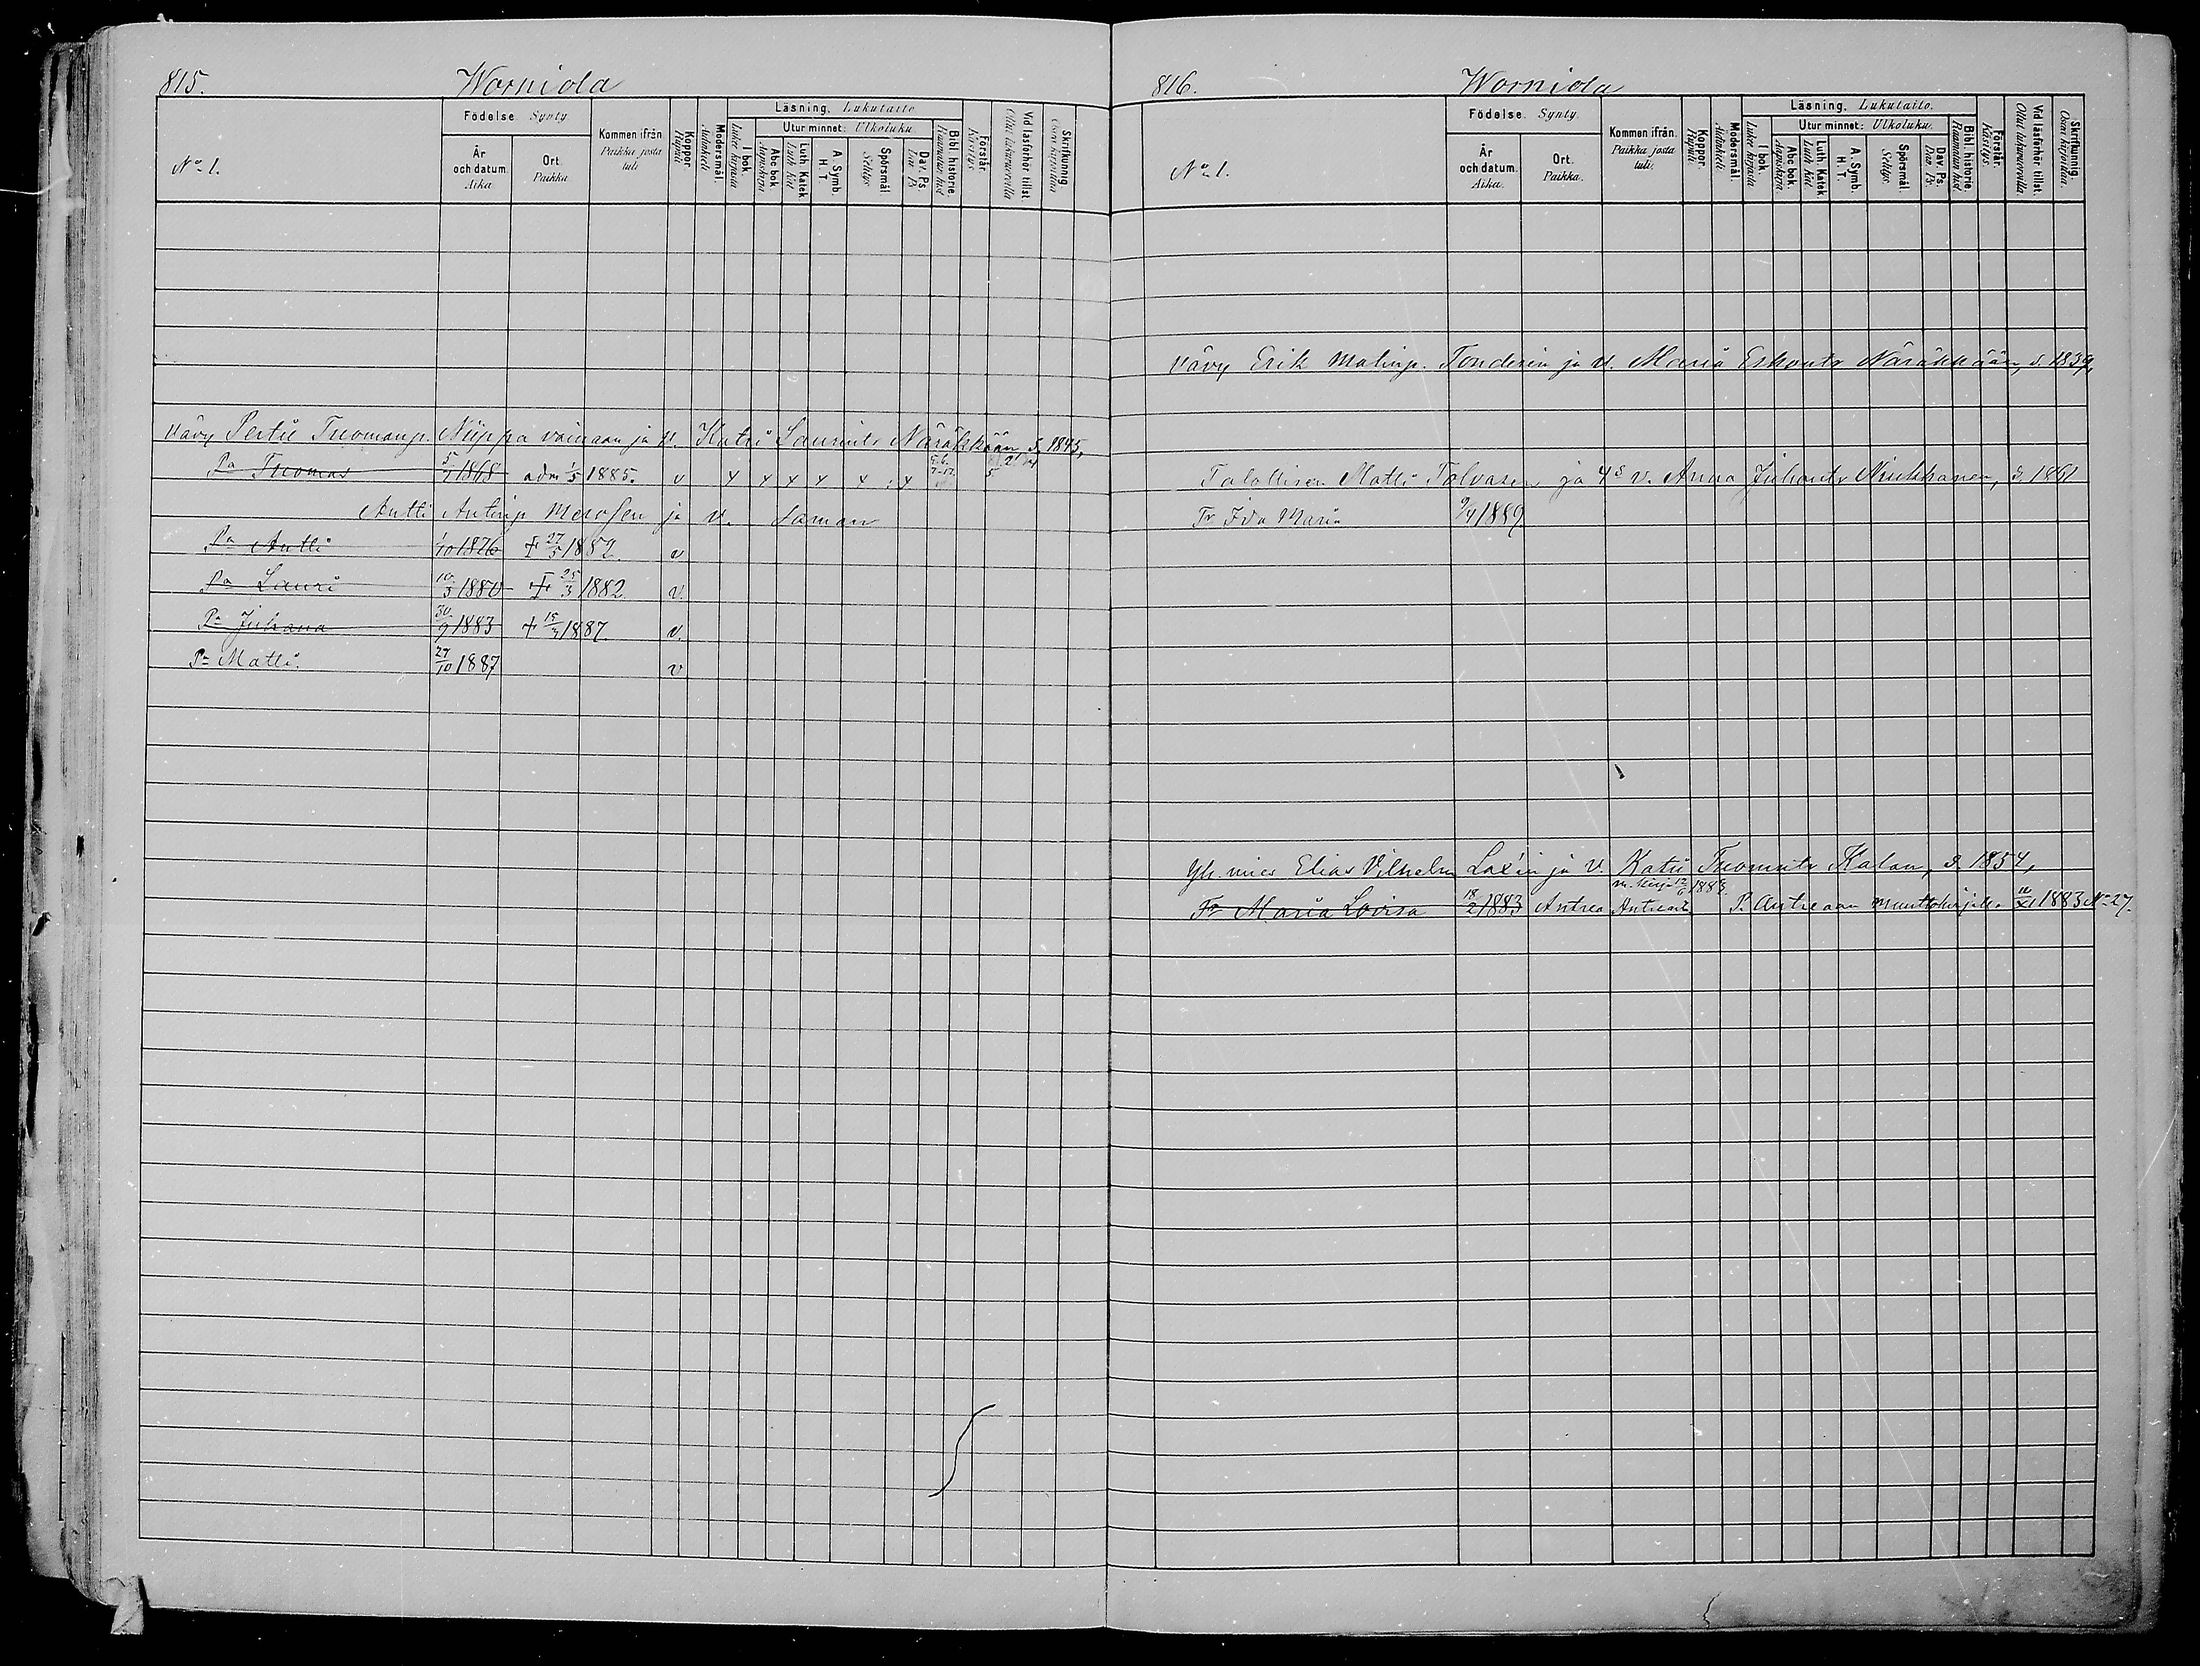 815. Worniola
Läsning. Lukutaito
Födelse Synty.
Kommen ifrån Paikka josta tuli
Koppor. Rupuli
Modersmål. Äidinkieli
Utur minnet: Ulkoluku
I bok. Lukee kirjasta
Abc bok. Aapiskirja
Luth. Katek. Luth. Kat.
A. Symb. H. T.
Spörsmål Selitys
Dav. Ps. Dav. Ps
Bibl. historie. Raamatun hist.
Förstår. Käsitys
Vid läsförhör tillst. Ollut lukuluvulla
Skrifkunnig Osaa kirjoittaa
År och datum. Aika
Ort. Paikka
No 1.
Vävy Pertti Tuomanp. Niippa vainaan ja v. Katri Laurintr Näräkkään, s. 1845,
Pa Tuomas 5/7 1868 adm 1/5 1885. v x x x x x x 5
Antti Antinp ja v. saman
Pa Antti 1/10 1876 + 27/5 1882 v
Pa Lauri 10/3 1880 + 25/3 1882 v.
Pa Juhana 30/9 1883 + 15/3 1887. v.
Pa Matti. 27/10 1887 v
816. Worniola
Läsning. Lukutaito.
Födelse. Synty.
Kommen ifrån. Paikka josta tuli.
Koppor. Rupuli
Modersmål. Äidinkieli
Utur minnet: Ulkoluku.
I bok. Lukee kirjasta
Abc bok. Aapiskirja
Luth. Katek. Luth. Kat
A. Symb. H. T.
Spörsmål Selitys.
Dav. Ps. Dav. Ps.
Bibl. historie. Raamatun hist.
Förstår. Käsitys.
Vid läsförhör tillst. Ollut lukuluvulla.
Skrifkunnig. Osaa kirjoittaa.
År och datum. Aika.
Ort. Paikka.
No 1.
Vävy Erik Matinp. Tonderin ja v. Maria Erkontr Näräkkään, s. 1839,
Talollisen Matti Talvasen ja 4s v. Anna Juhontr Niukkanen, s. 1861
Tr Ida Maria 9/4 1889
Yh. mies Elias Vilhelm Laxin ja v. Katri Tuomntr Kalan, s. 1854,
m. kirja 12/6 1888.
Tr Maria Lovisa 18/2 1883 Antrea Antreast P. Antreaan muuttokirjalla 11/XI 1883 No 27.